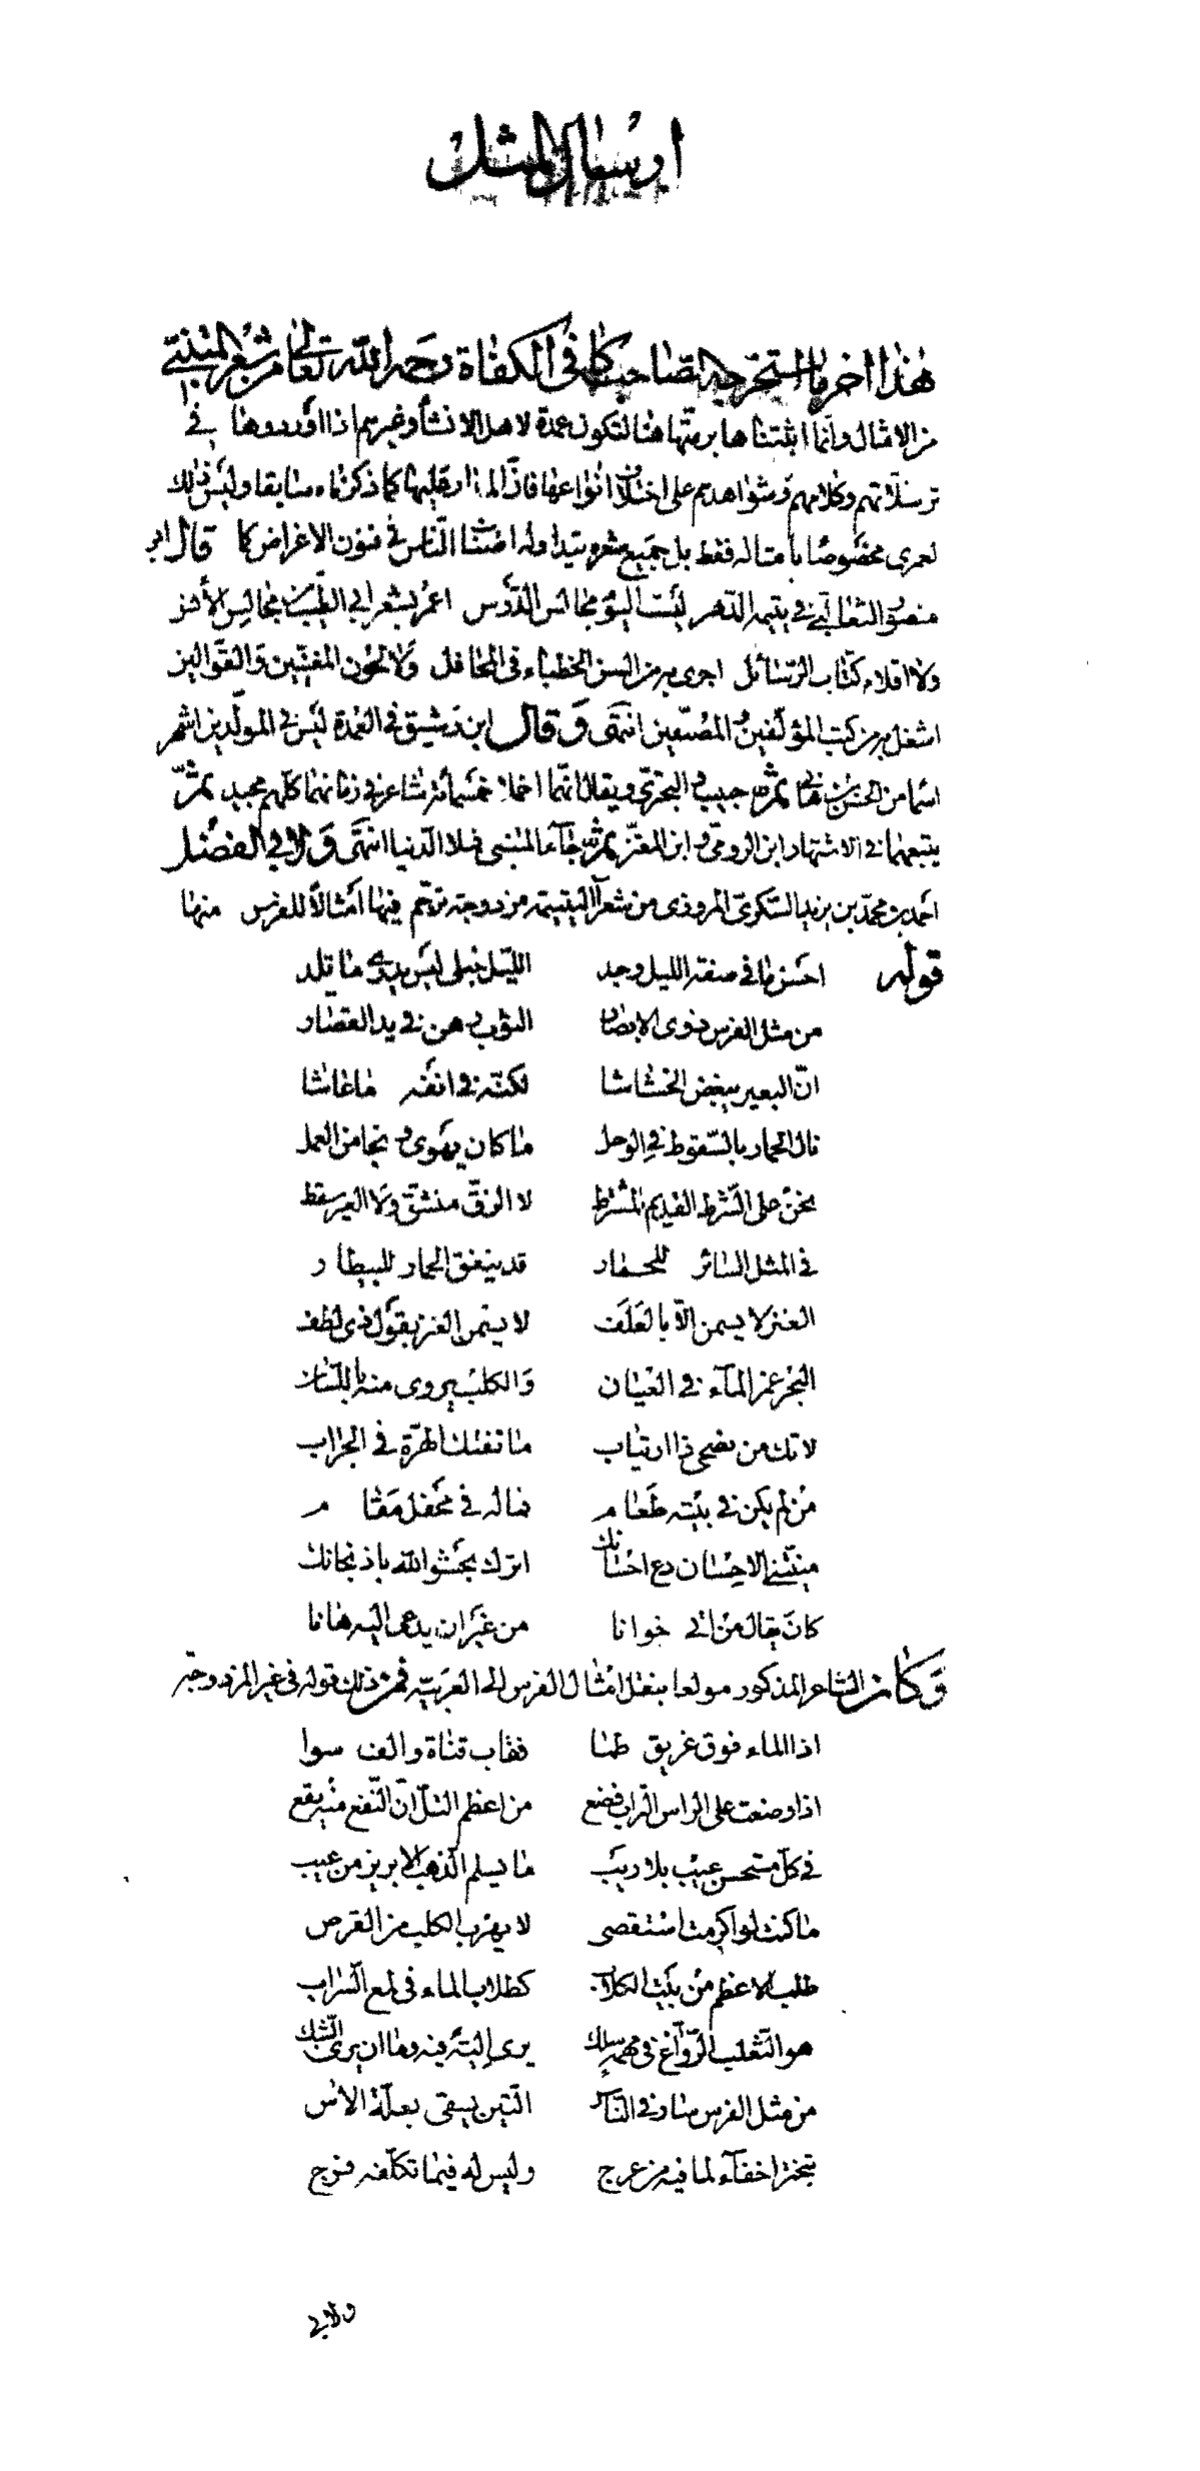 ارسال المثل
هذا اخر ما استخرجه الصاحب كافى الكفاة رحمه الله تعالى من شعر المتنبي
من الامثال وانما اثبتناها برمتها هنا لتكون عمدة لاهل الانشاء وغيرهم اذا اوردوها في
ترسلاتهم وكلامهم وشواهدهم على اختلاف انواعها فاذا لم ار قلبها كما ذكرناه سابقا وليس ذلك
لعمرى مخصوصا بامثاله فقط بل جميع شعره يتداوله امتثنا الناس في فنون الاغراض كما قال ابو
منصور الثعالبي في يتيمه الدهر ليست اليوم مجالس الدرس اعمر بشعر ابي الطيب من مجالس الأنس
ولا اقلام كتاب الرسائل اجرى به من السن الخطباء فى المحافل ولا لحون المغنيين والقوالين
اشغل به من كتب المؤلفين والمصنفين انتهى وقال ابن رشيق في العمدة ليس في المولدين اشهر
اسما من الحسن بن هاني ثم حبيب و البحترى ويقال انهما اخملا خمسمائة شاعر في زمانهما كلهم مجيد ثم
يتبعهما في الاشتهار ابن الرومى و ابن المعتز ثم جاء المتنبى فملا الدنيا انتهى ولابي الفضل
احمد بن محمد بن يزيد السكرى المروزى من شعراء اليتيمة مزدوجة ترجم فيها امثالا للفرس منها
قوله احسن ما في صفة الليل وجد الليل حبلى ليس يدرى ما تلد
من مثل الفرس ذوى الابصار الثوب رهن في يد القصار
ان البعير يبغض الخشاشا لكنه في انفه ما عاشا
نال الحمار بالسقوط في الوحل ما كان يهوى و نجا من العمل
نحن على الشرط القديم المشترط لا الزق منشق ولا العير سقط
في المثل السائر للحمار قد ينفق الحمار للبيطار
العنز لا يسمن الا بالعلف لا يسمن العنز بقول ذى لطف
البحر غمر الماء في العيان والكلب يروى منه باللسان
لا تك من نصحى ذا ارتياب ما تبعك الهرة في الجراب
من لم يكن في بيته طعام فماله في محفل مقام
منيتني الاحسان دع احسانك اترك بحشو الله باذنجانك
كان يقال من اتى خوانا من غير ان يدعى اليه هانا
وكان الشاعر المذكور مولعا بنقل امثال الفرس الى العربيه فمن ذلك قوله في غير المزدوجة
اذا الماء فوق غريق طما فقاب قناة والف سوا
اذا وضعت على الراس التراب فضع من اعظم التل ان النفع منه يقع
في كل مستحسن عيب بلا ريب ما يسلم الذهب الابريز من عيب
ما كنت لو اكرمت استقصى لا يهرب الكلب من القرص
طلب الاعظم من بيت الكلاب كطلاب الماء فى لمع السراب
هو الثعلب الرواغ في مهمه سلك يرى البته فيه وما ان يرى الشك
من مثل الفرس سار في الناس التين يسقى بعلة الاس
تبختر اخفاء لما فيه من عرج وليس له فيما تكلفه فرج
ولابي